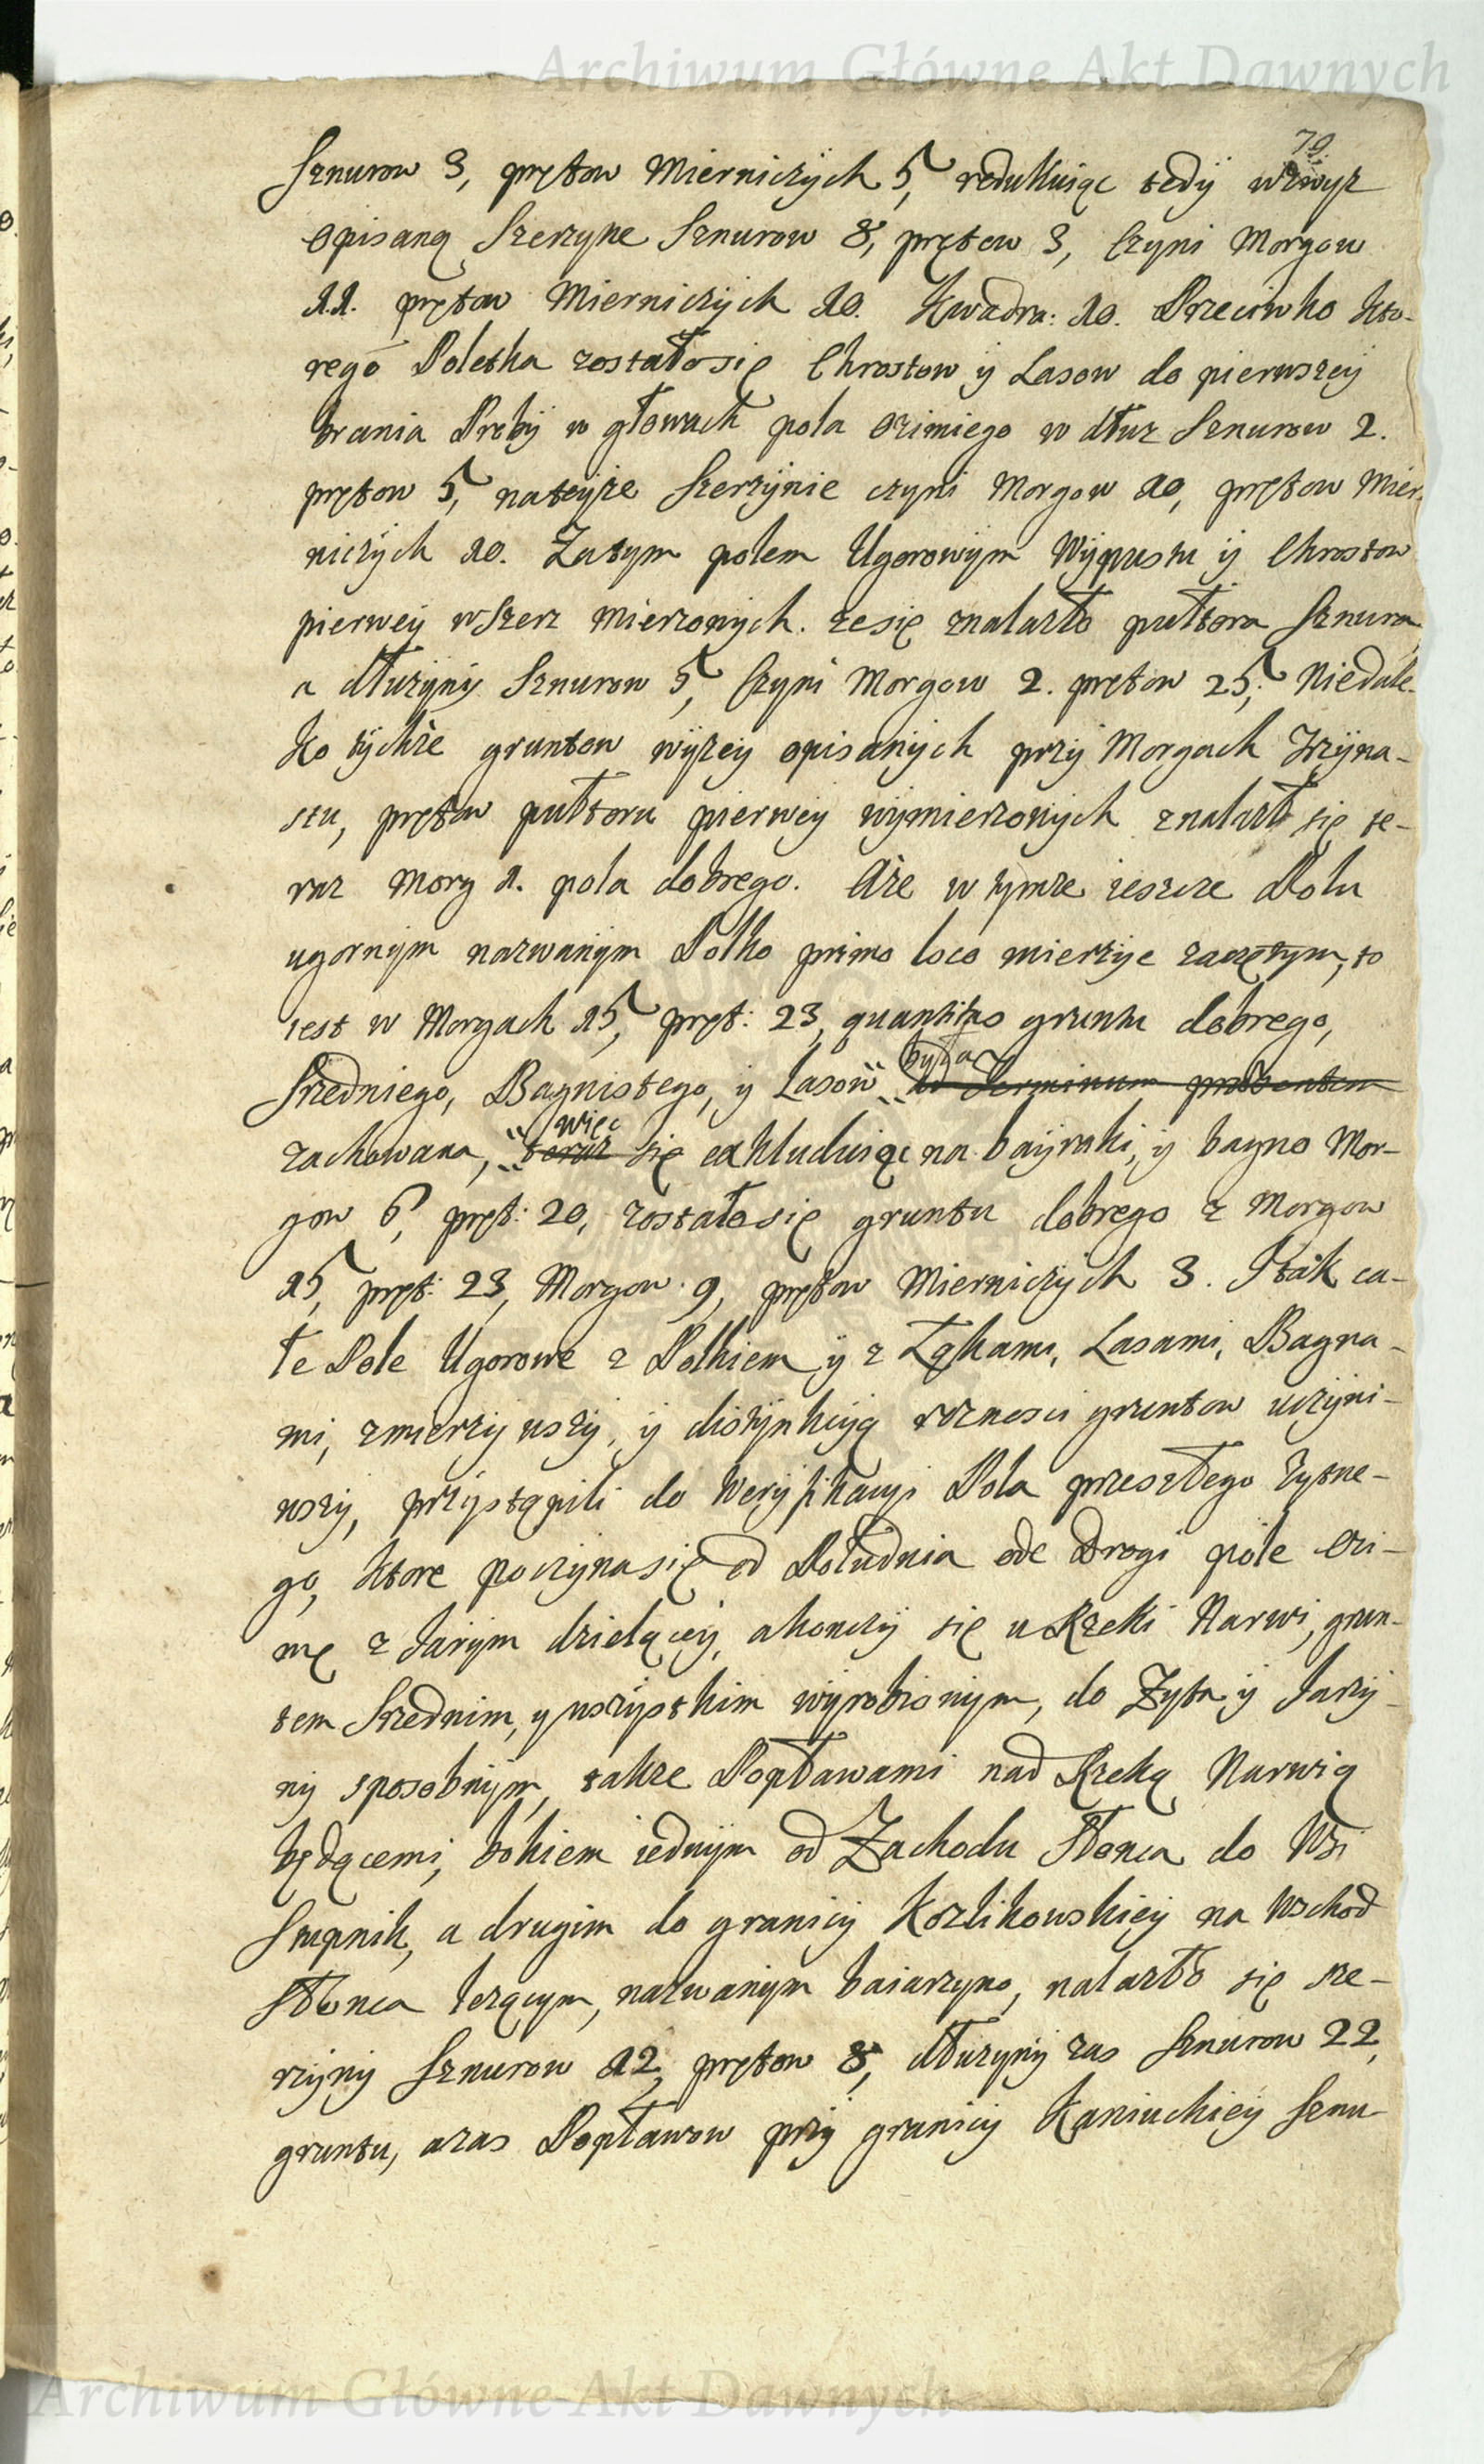 Archiwum Główne Akt Dawnych
79
Sznurow 3, prętow Mierniczych 5, redukuiąc tedÿ wzwyż
Opisaną Szerzyne Sznurow 8, prętow 3, Czyni Morgow
11. prętow Mierniczÿch 10. Kwadra: 10. Przeciwko kto-
rego Poletka zostałosię Chrostow ÿ Lasow do pierwszeÿ
brania Probÿ w głowach pola Ozimiego w dłuz Sznurow 2.
prętow 5, nateÿże Szerzÿnie czyni Morgow 10, prętow Mier-
niczÿch 10. Zatym polem Ugorowÿm Wÿpustu ÿ Chrostow
pierweÿ wSzerz mierzonych. zesię znalazło pułtora Sznura,
a dłużyny Sznurow 5, Czyni Morgow 2. prętow 25, Niedale-
ko tÿchże gruntow wÿżeÿ opisanÿch przÿ Morgach Trzÿna-
stu, prętow pułtoru pierweÿ wÿmierzonÿch znalazł się te-
raz Morg 1. pola dobrego. Aże w tymże ieszcze Polu
ugornÿm nazwanÿm Polko primo loco mierzÿc zaczętym, to
iest w Morgach 15, pręt: 23, quantitas gruntu dobrego,
Sredniego, Bagnistego, ÿ Lasow była ad Terminum
zachowana, więc teraz się exkluduiąc na baÿraki, ÿ bagno Mor-
gow 6, pręt: 20, zostałosię gruntu dobrego z Morgow
15, pręt: 23, Morgow 9, prętow Mierniczÿch 3. Itak ca-
łe Pole Ugorowe z Polkiem ÿ z Łąkami, Lasami, Bagna-
mi, zmierzÿwszÿ, ÿ distÿnkcÿą roznosci gruntow uczÿni-
wszÿ, przÿstąpili do Werÿfikacyi Pola przeszłego żytne-
go, ktore poczÿnasię od Południa ode Drogi pole Ozi-
me z Jarym dzielącej, akonczÿ się u Rzeki Narwi, grun-
tem Srednim, y wszÿstkim wÿrobionÿm, do Zyta ÿ Jarzÿ-
nÿ sposobnÿm, takze Popławami nad Rzeką Narwią
będącemi, bokiem iednÿm od Zachodu Słonca do Wsi
Stupnik, a drugim do granicÿ Kozlikowskieÿ na Wschod
Słonca leżącym, nazwanÿm baiarzyno, nalazło się sze-
rzÿnÿ Sznurow 12, prętow 8, dłużynÿ zas Sznurow 22,
gruntu, azas Popławow przÿ granicÿ Kaniuckieÿ Sznu
Archiwum Główne Akt Dawnych